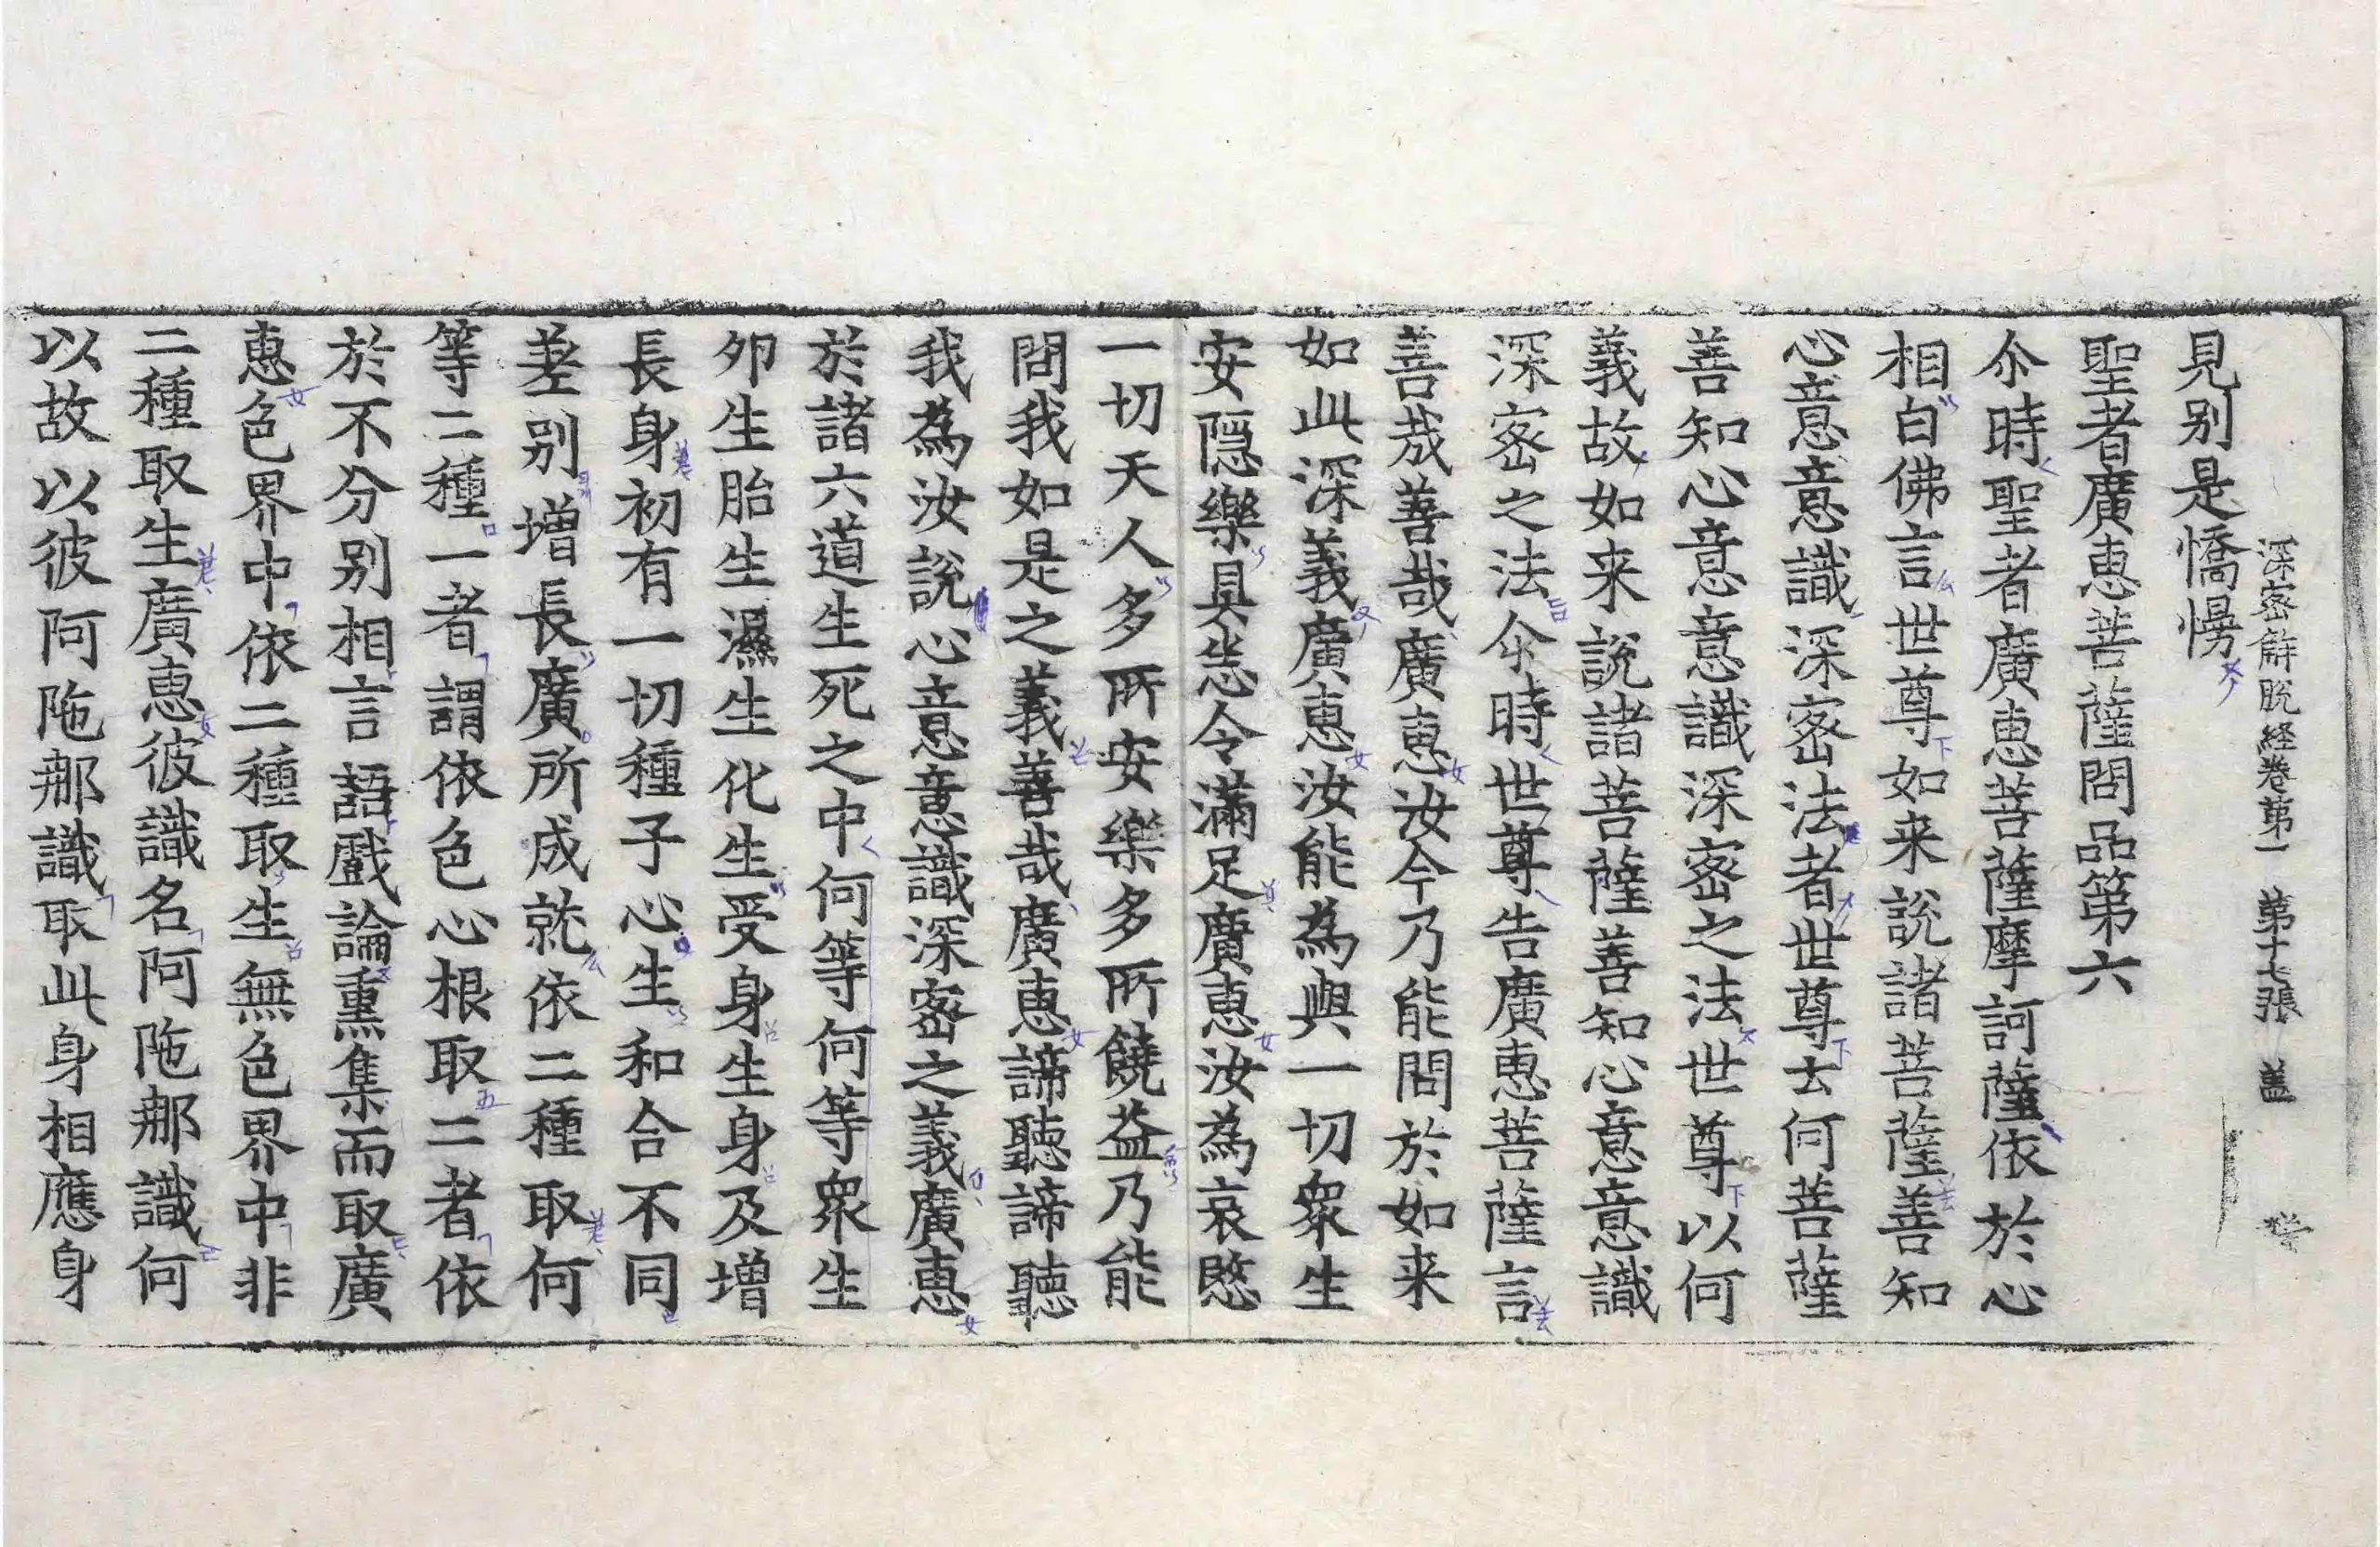 深密解脫経卷第一 第十七張 盖
見别是憍慢
聖者廣恵菩薩問品第六
尒時聖者廣恵菩薩摩訶薩依於心
相白佛言世尊如来說諸菩薩善知
心意意識深密法者世尊云何菩薩
善知心意意識深密之法世尊以何
義故如来說諸菩薩善知心意意識
深密之法尒時世尊告廣恵菩薩言
善哉善哉廣恵汝今乃能問於如来
如此深義廣恵汝能為與一切衆生
安隱樂具悉令滿足廣恵汝為哀愍
一切天人多所安樂多所饒益乃能
問我如是之義善哉廣恵諦聽諦聽
我為汝說心意意識深密之義廣恵
於諸六道生死之中何等何等衆生
夘生胎生濕生化生受身生身及增
長身初有一切種子心生和合不同
差别增長廣所成就依二種取何
等二種一者謂依色心根取二者依
於不分别相言語戲論熏集而取廣
恵色界中依二種取生無色界中非
二種取生廣恵彼識名阿陁那識何
以故以彼阿陁那識取此身相應身